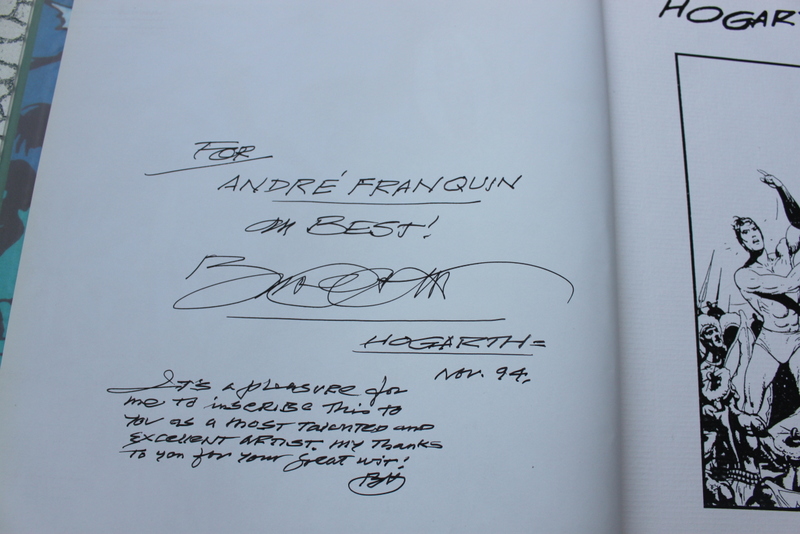 FOR
ANDRÉ FRANQUIN
BEST!
HOGARTH
NOV. 94.
It's a pleasure for
me to inscribe this to
you as a most talented and
excellent artist. My thanks
to you for your great wit!
BH
HOGAR